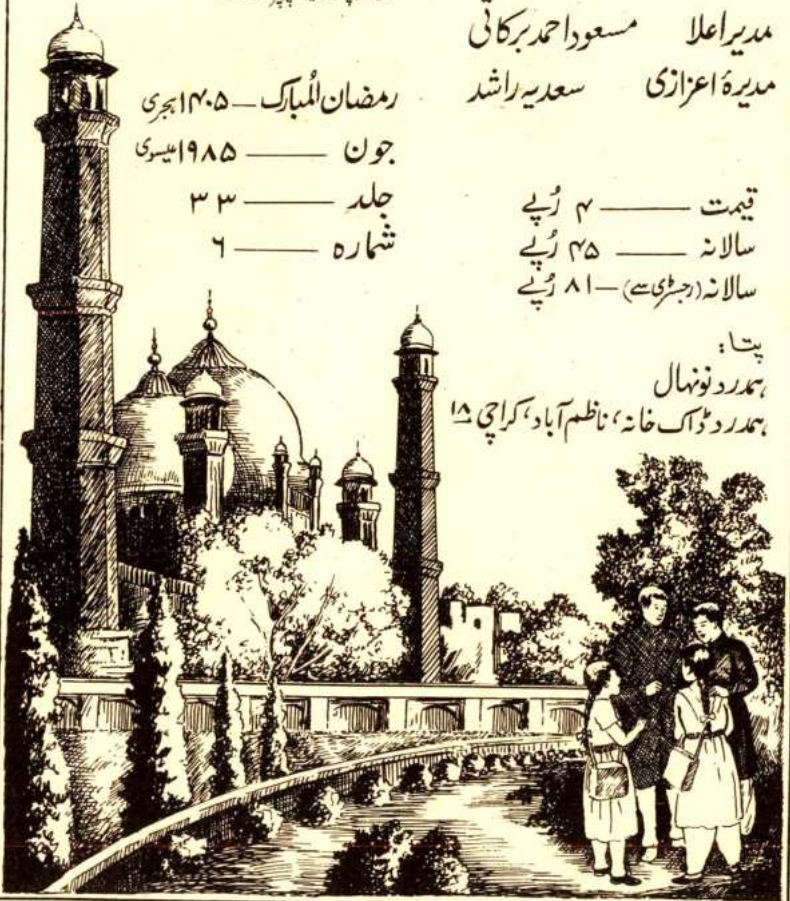 مدیر اعلا مسعود احمد برکاتی
مدیرۂ اعزازی سعدیہ راشد
رمضان المُبارک — ۱۴۰۵ ہجری
جون — ۱۹۸۵ عیسوی
جلد — ۳۳
شمارہ — ۶
قیمت — ۴ رُپے
سالانہ — ۴۵ رُپے
سالانہ (رجسٹری سے) — ۸۱ رُپے
پتا:
ہمدرد نونہال
ہمدرد ڈاک خانہ، ناظم آباد، کراچی ۱۸